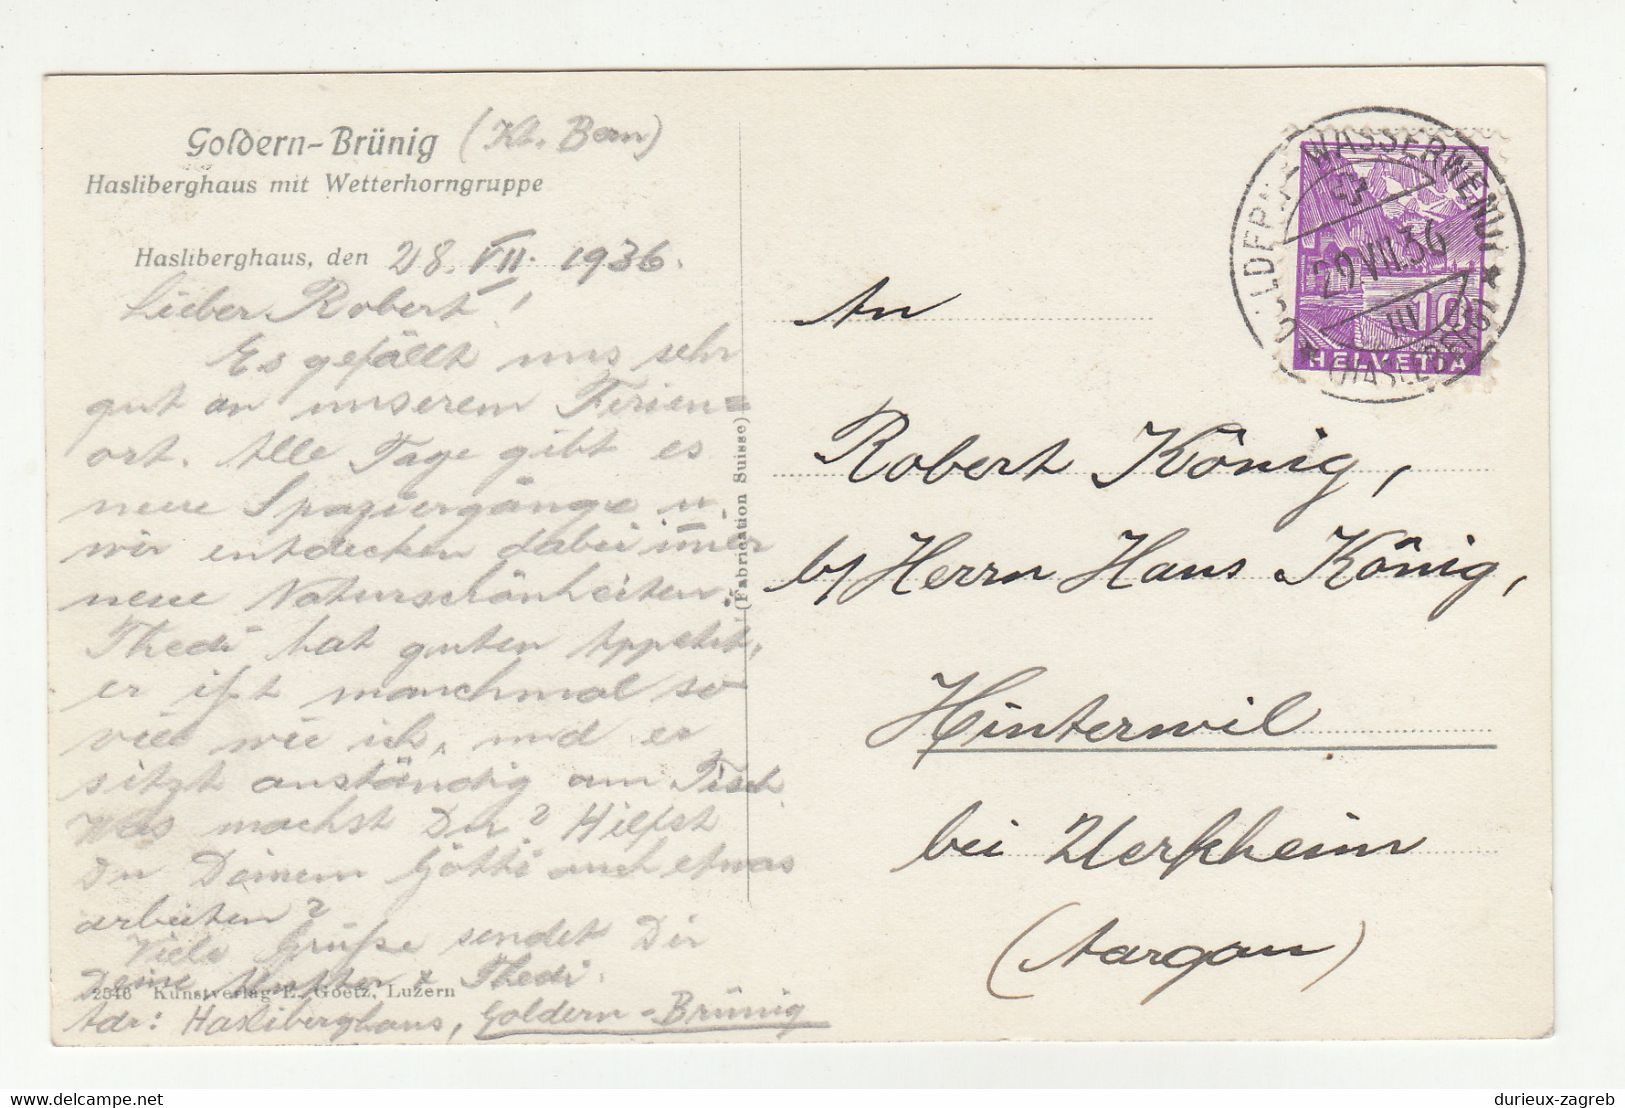 Goldern-Brünig (Kt. Bern)
Hasliberghaus mit Wetterhorngruppe
Hasliberghaus, den 28. VII. 1936.
Lieber Robert!
Es gefällt uns sehr
gut an unserem Ferien=
ort. Alle Tage gibt es
neue Spaziergänge u.
wir entdecken dabei im̅er
neue Naturschönheiten.
Thedi hat guten Appetit,
er ißt manchmal so
viel wie ich, und er
sitzt anständig am Tisch.
Was machst Du? Hilfst
Du Deinem Götti auch etwas
arbeiten?
Viele Grüße sendet Dir
Deine Mutter & Thedi.
2546 Kunstverlag E. Goetz, Luzern
Adr: Hasliberghaus, Goldern-Brünig
(Fabrication Suisse)
GOLDERN-WASSERWENDI
29.VII.36
III
(HASLEBERG)
10
HELVETIA
An
Robert König,
b/ Herrn Hans König,
Hinterwil
bei Uerkheim
(Aargau)
durieux-zagreb
delcampe.net